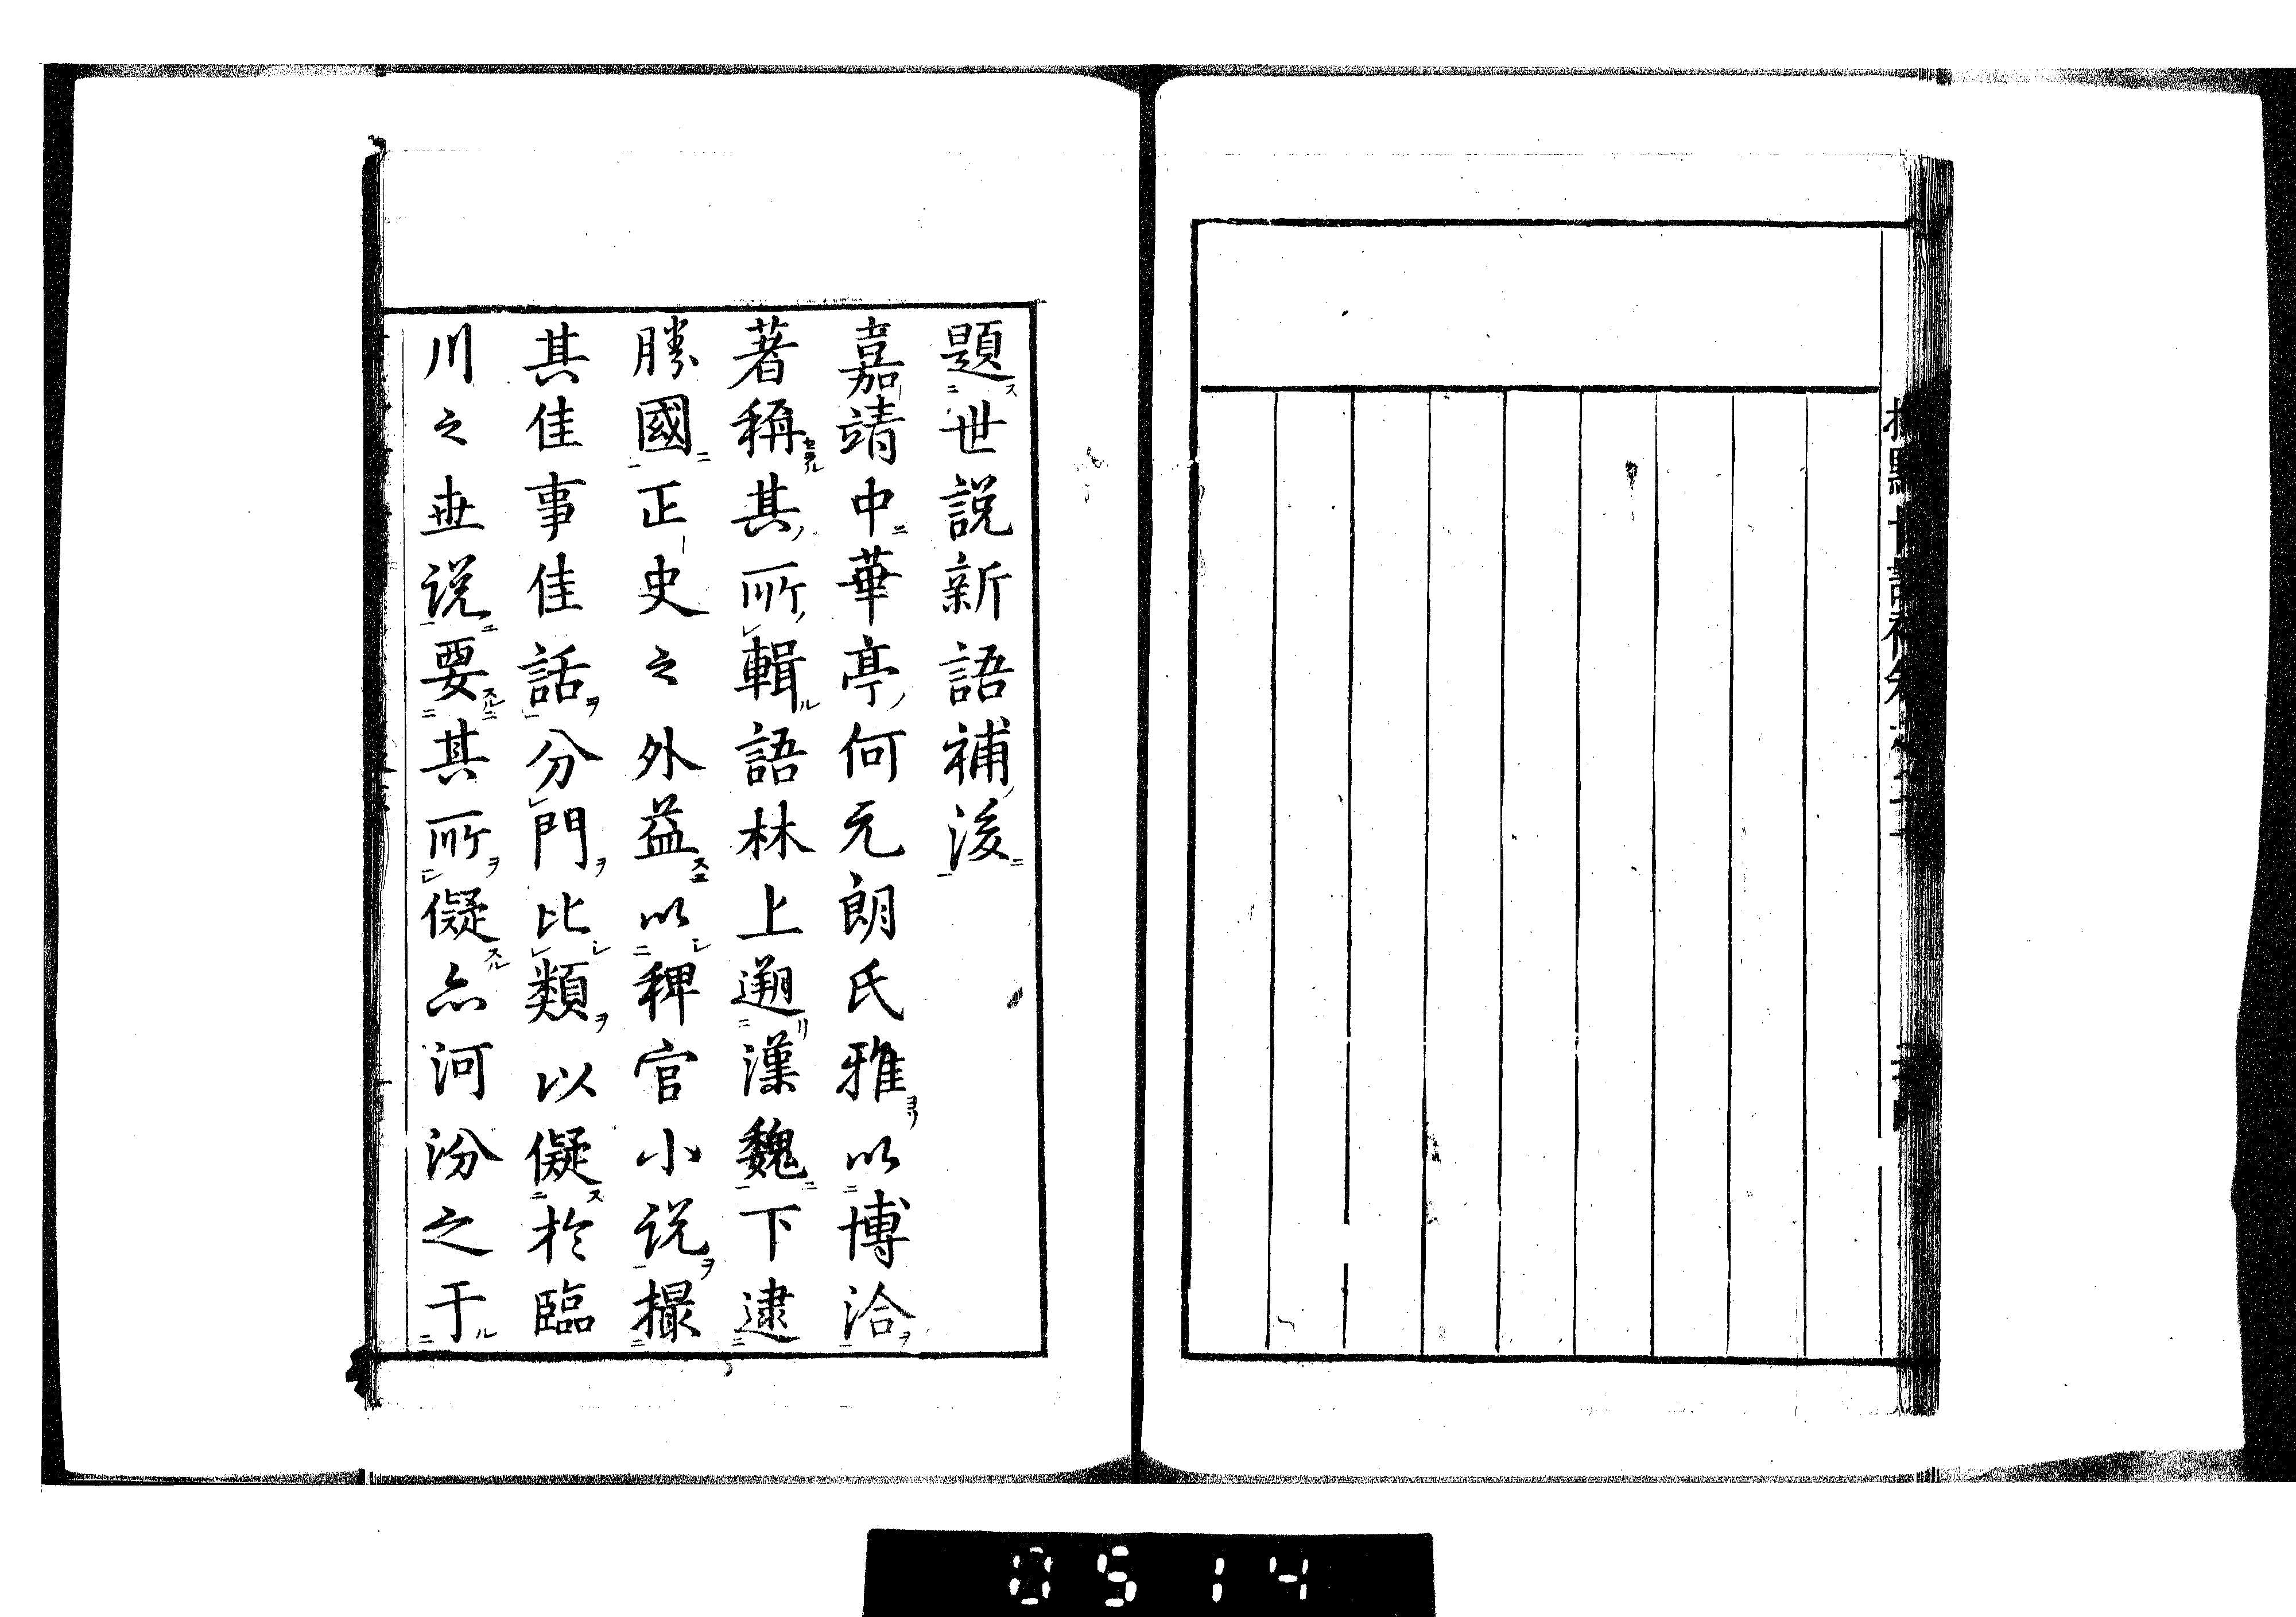 題世説新語補後
嘉靖中華亭何元朗氏雅以博洽
著稱其所輯語林上遡漢魏下逮
勝國正史之外益以稗官小說撮
其佳事佳話分門比類以儗於臨
川之世說要其所儗亦河汾之于
0514